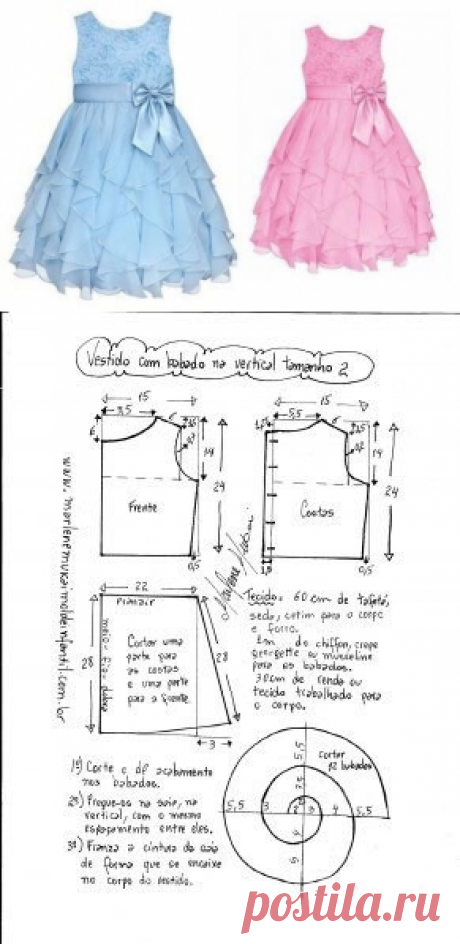 Vestido com babado na vertical tamanho 2
15
5,5
6
14
24
Frente
0,5
15
5,5
14
24
Costas
1,5
0,5
www.marlenemukaimoldeinfantil.com.br
22
Franzir
meio - fio - dobra
28
28
3
Cortar uma
parte para
as costas
e uma parte
para a frente.
Tecido: 60 cm de tafetá,
seda, cetim para o corpo
e forro.
1m de chiffon, crepe
georgette ou musseline
para os babados.
30cm de renda ou
tecido trabalhado para
o corpo.
1º) Corte e dê acabamento
nos babados.
2º) Pregue-os na saia, na
vertical, com o mesmo
espaçamento entre eles.
3º) Franza a cintura da saia
de forma que se encaixe
no corpo do vestido.
cortar
12 babados
5,5
5,5
3
2
3
4
5,5
postila.ru